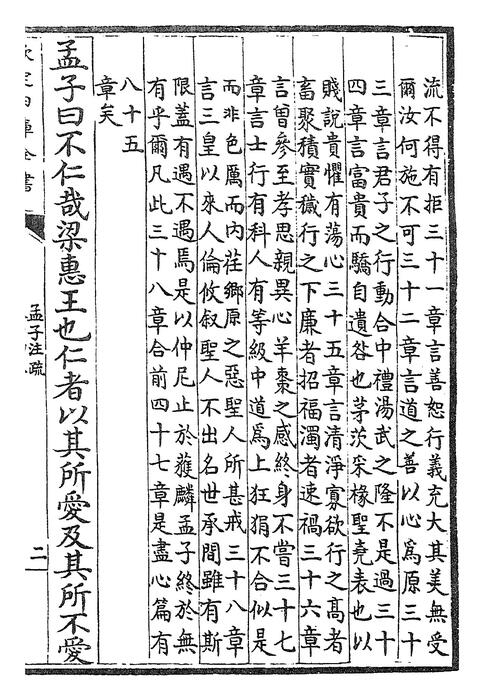 流不得有拒三十一章言善恕行義充大其美無受
爾汝何施不可三十二章言道之善以心爲原三十
三章言君子之行動合中禮湯武之隆不是過三十
四章言富貴而驕自遺咎也茅茨采椽聖堯表也以
賤說貴懼有蕩心三十五章言清淨寡欲行之高者
畜聚積實穢行之下廉者招福濁者速禍三十六章
言曾參至孝思親異心羊棗之感終身不嘗三十七
章言士行有科人有等級中道爲上狂狷不合似是
而非色厲而內荏鄉原之惡聖人所甚戒三十八章
言三皇以來人倫攸叙聖人不出名世承間雖有斯
限蓋有遇不遇焉是以仲尼止於獲麟孟子終於無
有乎爾凡此三十八章合前四十七章是盡心篇有
八十五
章矣
孟子曰不仁哉梁惠王也仁者以其所愛及其所不愛
欽定四庫全書
孟子注疏
二